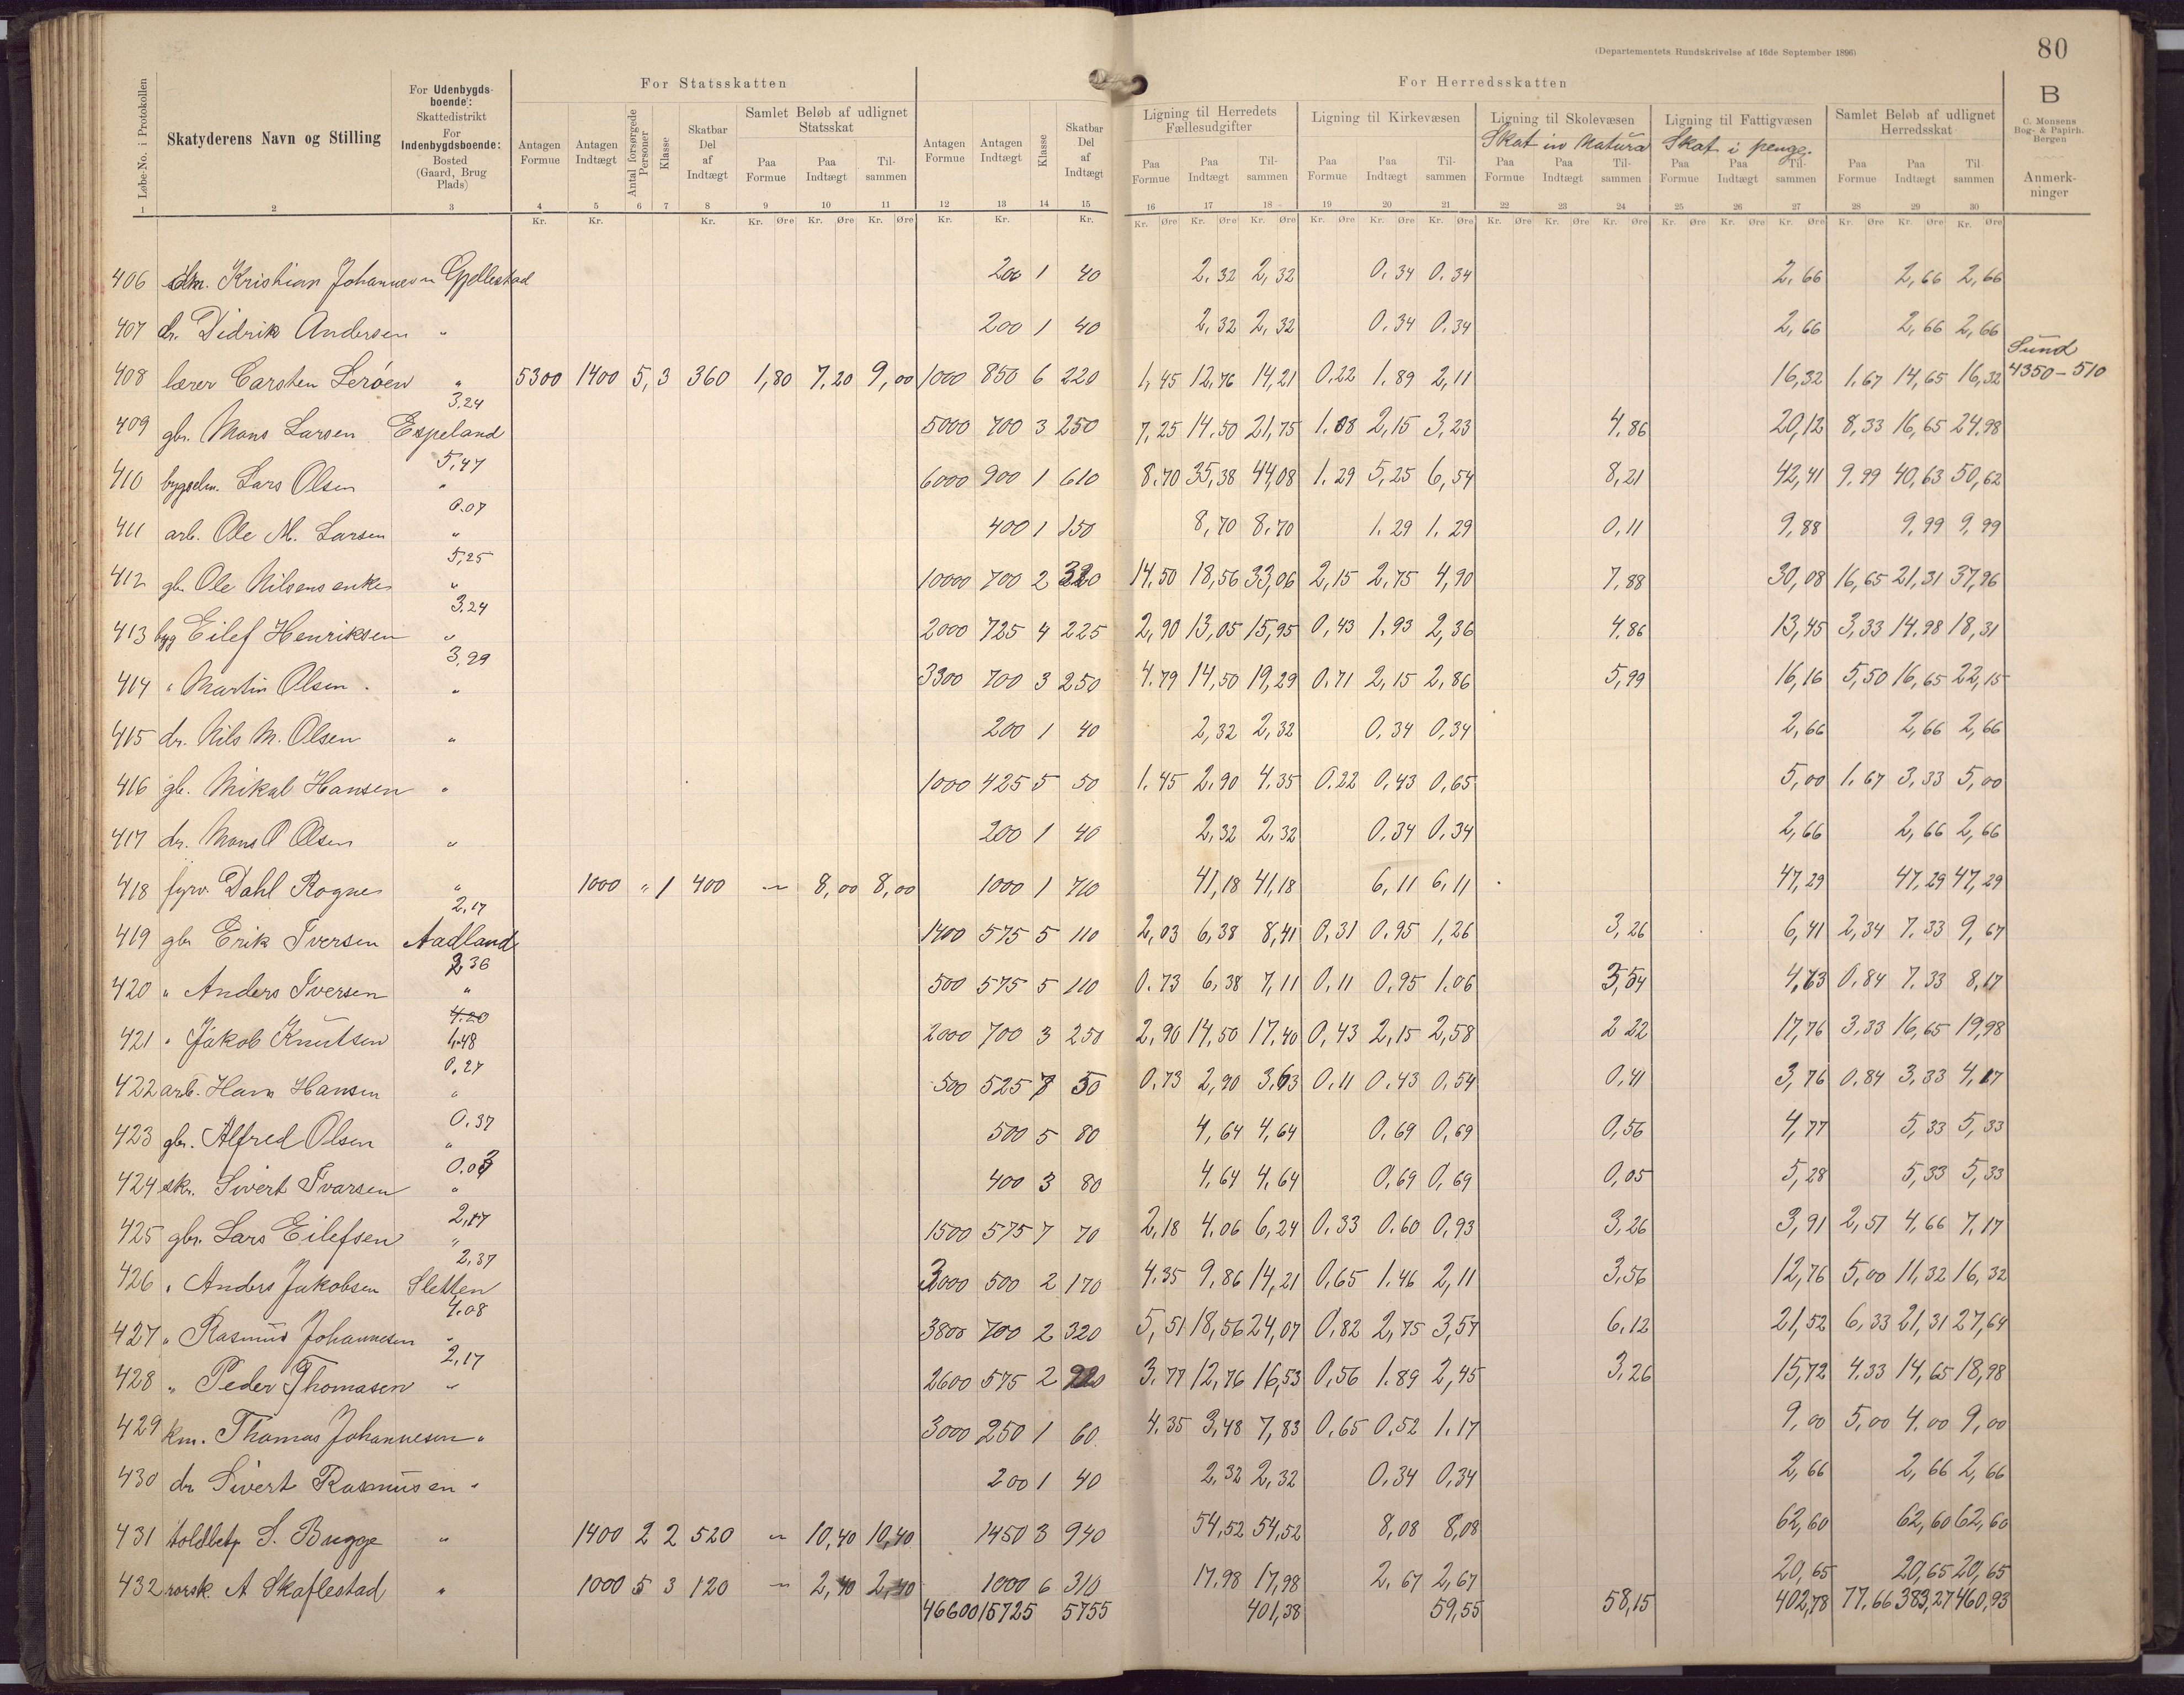 (Departementets Rundskrivelse af 16de September 1896)
80
For Statsskatten
For Herredsskatten
B
Løbe-No. i Protokollen
Skatyderens Navn og Stilling
For Udenbygds-boende: Skattedistrikt For Indenbygdsboende: Bosted (Gaard, Brug Plads)
Antagen Formue
Antagen Indtægt
Antal forsørgede Personer
Klasse
Skatbar Del af Indtægt
Samlet Beløb af udlignet Statsskat
Paa Formue
Paa Indtægt
Til-sammen
Antagen Formue
Antagen Indtægt
Klasse
Skatbar Del af Indtægt
Ligning til Herredets Fællesudgifter
Paa Formue
Paa Indtægt
Til-sammen
Ligning til Kirkevæsen
Paa Formue
Paa Indtægt
Til-sammen
Ligning til Skolevæsen
Skat in Natura
Paa Formue
Paa Indtægt
Til-sammen
Ligning til Fattigvæsen
Skat i penge.
Paa Formue
Paa Indtægt
Til-sammen
Samlet Beløb af udlignet Herredsskat
Paa Formue
Paa Indtægt
Til-sammen
C. Monsens Bog- & Papirh. Bergen
Anmerk-ninger
1 2 3 4 5 6 7 8 9 10 11 12 13 14 15 16 17 18 19 20 21 22 23 24 25 26 27 28 29 30
Kr. Kr. Kr. Kr. Øre Kr. Øre Kr. Øre Kr. Kr. Kr. Kr. Øre Kr. Øre Kr. Øre Kr. Øre Kr. Øre Kr. Øre Kr. Øre Kr. Øre Kr. Øre Kr. Øre Kr. Øre Kr. Øre Kr. Øre Kr. Øre Kr. Øre
406 Kristian Johannesen Gjellestad 200 1 40 2,32 2,32 0.34 0.34 2.66 2,66 2,66
407 dr. Didrik Andersen " 200 1 40 2,32 2,32 0.34 0.34 2,66 2,66 2,66
Sund
408 lærer Carsten Lerøen " 5300 1400 5, 3 360 1,80 7,20 9,00 1000 850 6 220 1,45 12,76 14,21 0.22 1.89 2,11 16,32 1.67 14,65 16,32 4350-510
3,24
409 gbr. Mons Larsen Espeland 5000 700 3 250 7,25 14.50 21,75 1.08 2,15 3,23 4.86 20,12 8,33 16,65 24,98
5,47
410 bygselm. Lars Olsen " 6000 900 1 610 8.70 35,38 44,08 1.29 5,25 6,54 8,21 42,41 9.99 40,63 50,62
0.07
411 arb. Ole M. Larsen " 400 1 150 8,70 8.70 1.29 1.29 0,11 9,88 9,99 9,99
5,25
412 gbr Ole Nilsens enke " 10000 700 2 320 14,50 18,56 33,06 2,15 2,75 4,90 7,88 30,08 16,65 21,31 37,96
3,24
413 byg Eilef Henriksen " 2000 725 4 225 2,90 13,05 15,95 0,43 1.93 2,36 4.86 13,45 3,33 14,98 18,31
3,99
414 " Martin Olsen " 3300 700 3 250 4.79 14,50 19,29 0.71 2,15 2,86 5,99 16,16 5,50 16,65 22,15
415 dr. Nils M. Olsen " 200 1 40 2,32 2,32 0.34 0,34 2,66 2,66 2,66
416 gb. Mikal Hansen " 1000 425 5 50 1.45 2,90 4.35 0.22 0,43 0,65 5,00 1.67 3,33 5,00
417 dr. Mons O Olsen " 200 1 40 2,32 2,32 0.34 0.34 2,66 2,66 2,66
418 fyrv. Dahl Rognes " 1000 " 1 400 " 8,00 8,00 1000 1 710 41,18 41,18 6,11 6,11 47,29 47,29 47,29
2,17
419 gbr Erik Iversen Aadland 1400 575 5 110 2,03 6,38 8,41 0,31 0.95 1,26 3,26 6,41 2,34 7.33 9,67
2,36
420 " Anders Iversen " 500 575 5 110 0.73 6,38 7,11 0,11 0.95 1.06 3,54 4,63 0,84 7.33 8,17
4.20
421 " Jakob Knutsen 1,48 2000 700 3 250 2,90 14,50 17,40 0,43 2,15 2,58 2 22 17,76 3.33 16,65 19,98
0,27
422 arb. Hans Hansen " 500 525 7 50 0.73 2,90 3.63 0.11 0.43 0,54 0,41 3,76 0.84 3,33 4,17
0,37
423 gbr. Alfred Olsen " 500 5 80 4,64 4,64 0.69 0,69 0,56 4,77 5,33 5,33
0.03
424 skr. Sivert Ivarsen " 400 3 80 4,64 4,64 0,69 0,69 0,05 5,28 5,33 5,33
2,17
425 gbr. Lars Eilefsen " 1500 575 7 70 2,18 4.06 6,24 0.33 0.60 0,93 3,26 3,91 2,51 4,66 7,17
2,37
426 " Anders Jakobsen Sletten 3000 500 2 170 4.35 9,86 14,21 0,65 1.46 2,11 3,56 12,76 5,00 11,32 16,32
4.08
427 " Rasmus Johannesen " 3800 700 2 320 5,51 18,56 24,07 0,82 2,75 3,57 6,12 21,52 6,33 21,31 27,64
2,17
428 " Peder Thomasen " 2600 575 2 220 3.77 12,76 16,53 0,56 1.89 2,45 3,26 15,72 4.33 14,65 18,98
429 km. Thomas Johannesen " 3000 250 1 60 4.35 3,48 7,83 0,65 0.52 1.17 9,00 5,00 4.00 9,00
430 dr Sivert Rasmussen " 200 1 40 2,32 2,32 0,34 0,34 2,66 2,66 2,66
431 toldbetj S. Brugge " 1400 2 2 520 " 10,40 10,40 1450 3 940 54,52 54,52 8,08 8,08 62,60 62,60 62,60
432 A Skaflestad " 1000 5 3 120 " 2,40 2,40 1000 6 310 17.98 17,98 2,67 2,67 20,65 20,65 20,65
46600 15725 5755 401,38 59,55 58,15 402,78 77.66 383,27 460,93